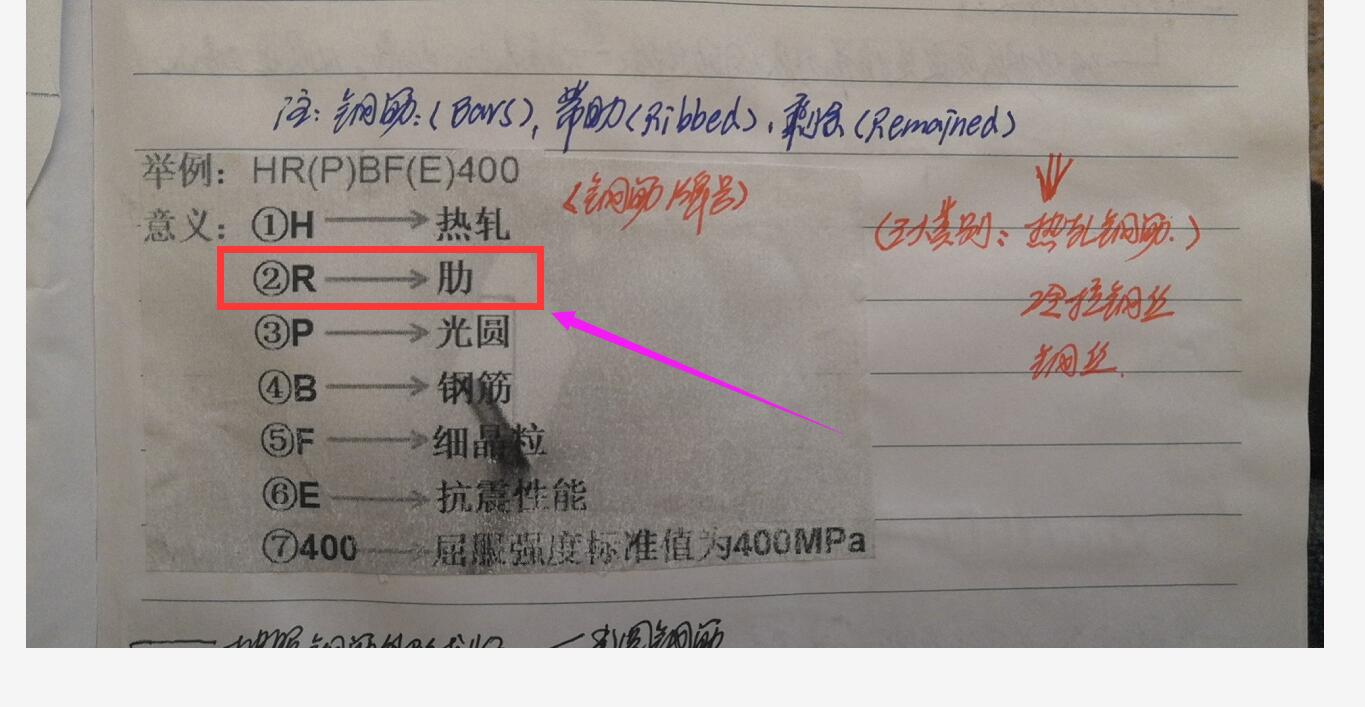 注：钢筋：(Bars)，带肋(Ribbed)、剩余(Remained)
举例：HR(P)BF(E)400
〈钢筋牌号〉
意义：①H → 热轧
(三大类别：热轧钢筋.)
②R → 肋
冷拉钢丝
③P → 光圆
钢丝.
④B → 钢筋
⑤F → 细晶粒
⑥E → 抗震性能
⑦400 → 屈服强度标准值为400MPa
钢筋